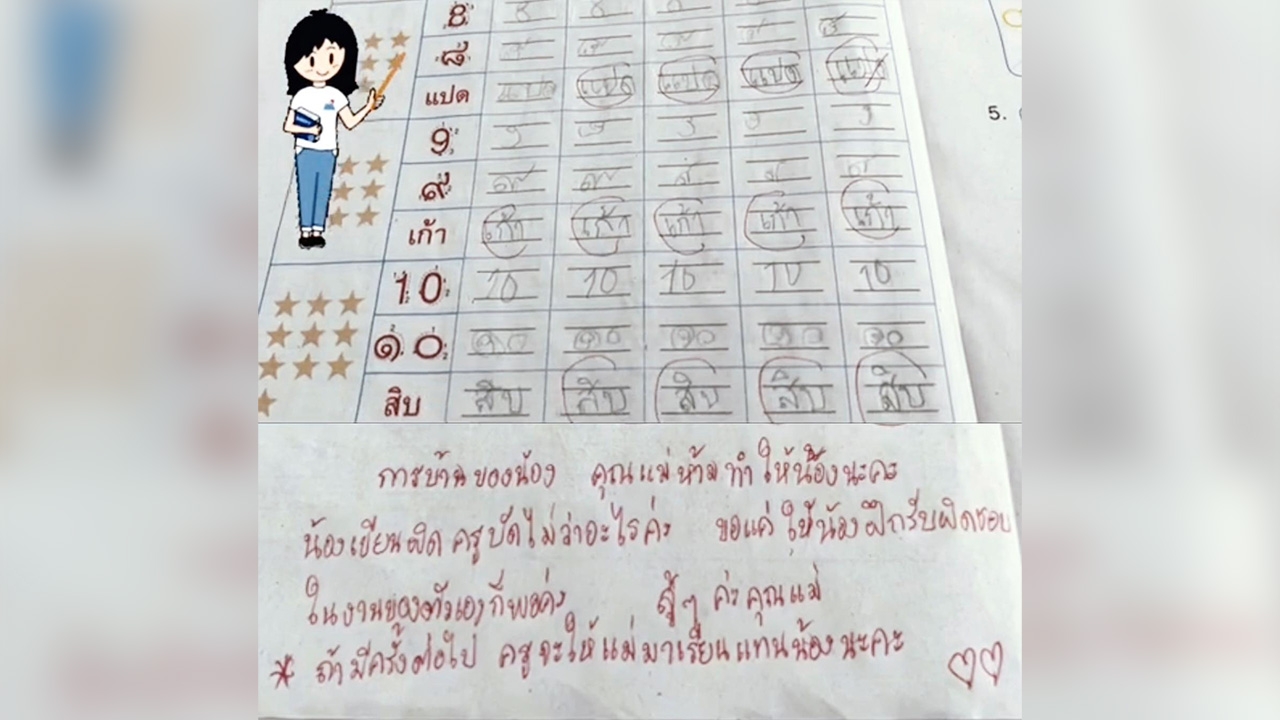 8 8 8 8
๘ ๘ ๘ ๘ ๘ ๘
แปด แปด แปด แปด แปด แปด
5.
9 9 9 9 9 9
๙ ๙ ๙ ๙ ๙ ๙
เก้า เก้า เก้า เก้า เก้า เก้า
10 10 10 10 10 10
๑๐ ๑๐ ๑๐ ๑๐ ๑๐ ๑๐
สิบ สิบ สิบ สิบ สิบ สิบ
การบ้านของน้อง คุณแม่ห้ามทำให้น้องนะคะ
น้องเขียนผิด ครูบัดไม่ว่าอะไรค่ะ ขอแค่ให้น้องฝึกรับผิดชอบ
ในงานของตัวเองก็พอค่ะ สู้ๆ ค่ะคุณแม่
* ถ้ามีครั้งต่อไป ครูจะให้แม่มาเรียนแทนน้องนะคะ ♡♡